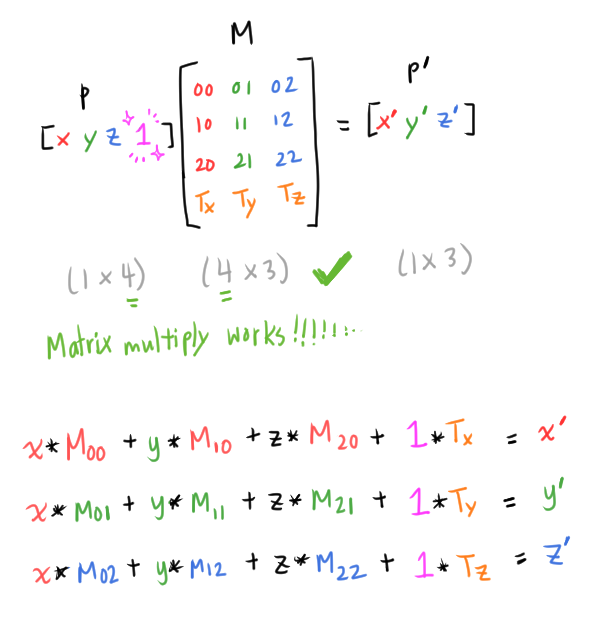 M
P P'
00 01 02
10 11 12
[x y z 1] = [x' y' z']
20 21 22
Tx Ty Tz
(1 x 4) (4 x 3) ✓ (1 x 3)
Matrix multiply works!!!!!!...
x* M00 + y* M10 + z* M20 + 1* Tx = x'
x* M01 + y* M11 + z* M21 + 1* Ty = y'
x* M02 + y* M12 + z* M22 + 1* Tz = z'